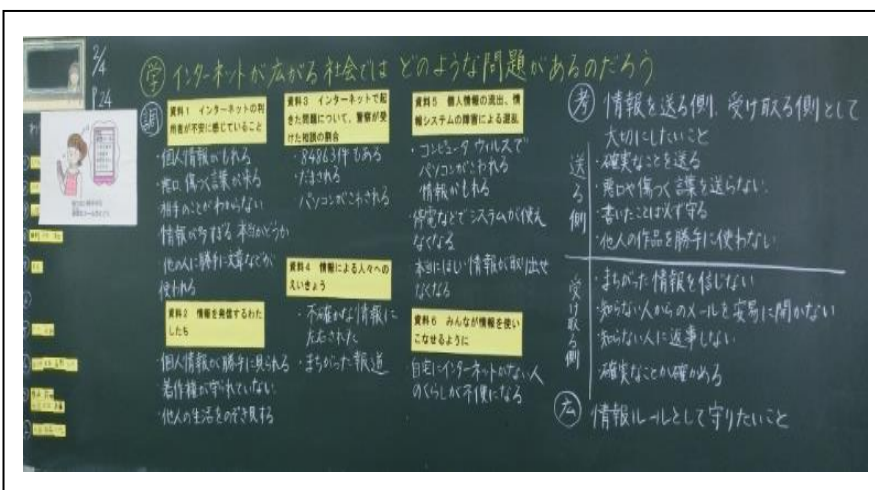 2/4
P24
学 インターネットが広がる社会では どのような問題があるのだろう
調
資料1 インターネットの利
用者が不安に感じていること
・個人情報がもれる
・悪口 傷つく言葉が来る
・相手のことがわからない
・情報が多すぎる 本当かどうか
・他の人に勝手に文章などが
使われる
資料2 情報を発信するわた
したち
・個人情報が勝手に見られる
・著作権が守れていない
・他人の生活をのぞき見する
資料3 インターネットで起
きた問題について、警察が受
けた相談の割合
・84863件もある
・だまされる
パソコンがこわされる
資料4 情報による人々への
えいきょう
・不確かな情報に
左右された
・まちがった報道
資料5 個人情報の流出、情
報システムの障害による混乱
・コンピュータ ウィルスで
パソコンがこわれる
情報がもれる
・停電などでシステムが使え
なくなる
本当にほしい情報が取り出せ
なくなる
資料6 みんなが情報を使い
こなせるように
自宅にインターネットがない人
のくらしが不便になる
考 情報を送る側、受け取る側として
大切にしたいこと
送る側
・確実なことを送る
・悪口や傷つく言葉を送らない
・書いたことは必ず守る
・他人の作品を勝手に使わない
受け取る側
・まちがった情報を信じない
・知らない人からのメールを安易に開かない
・知らない人に返事しない
・確実なことか確かめる
広 情報ルールとして守りたいこと